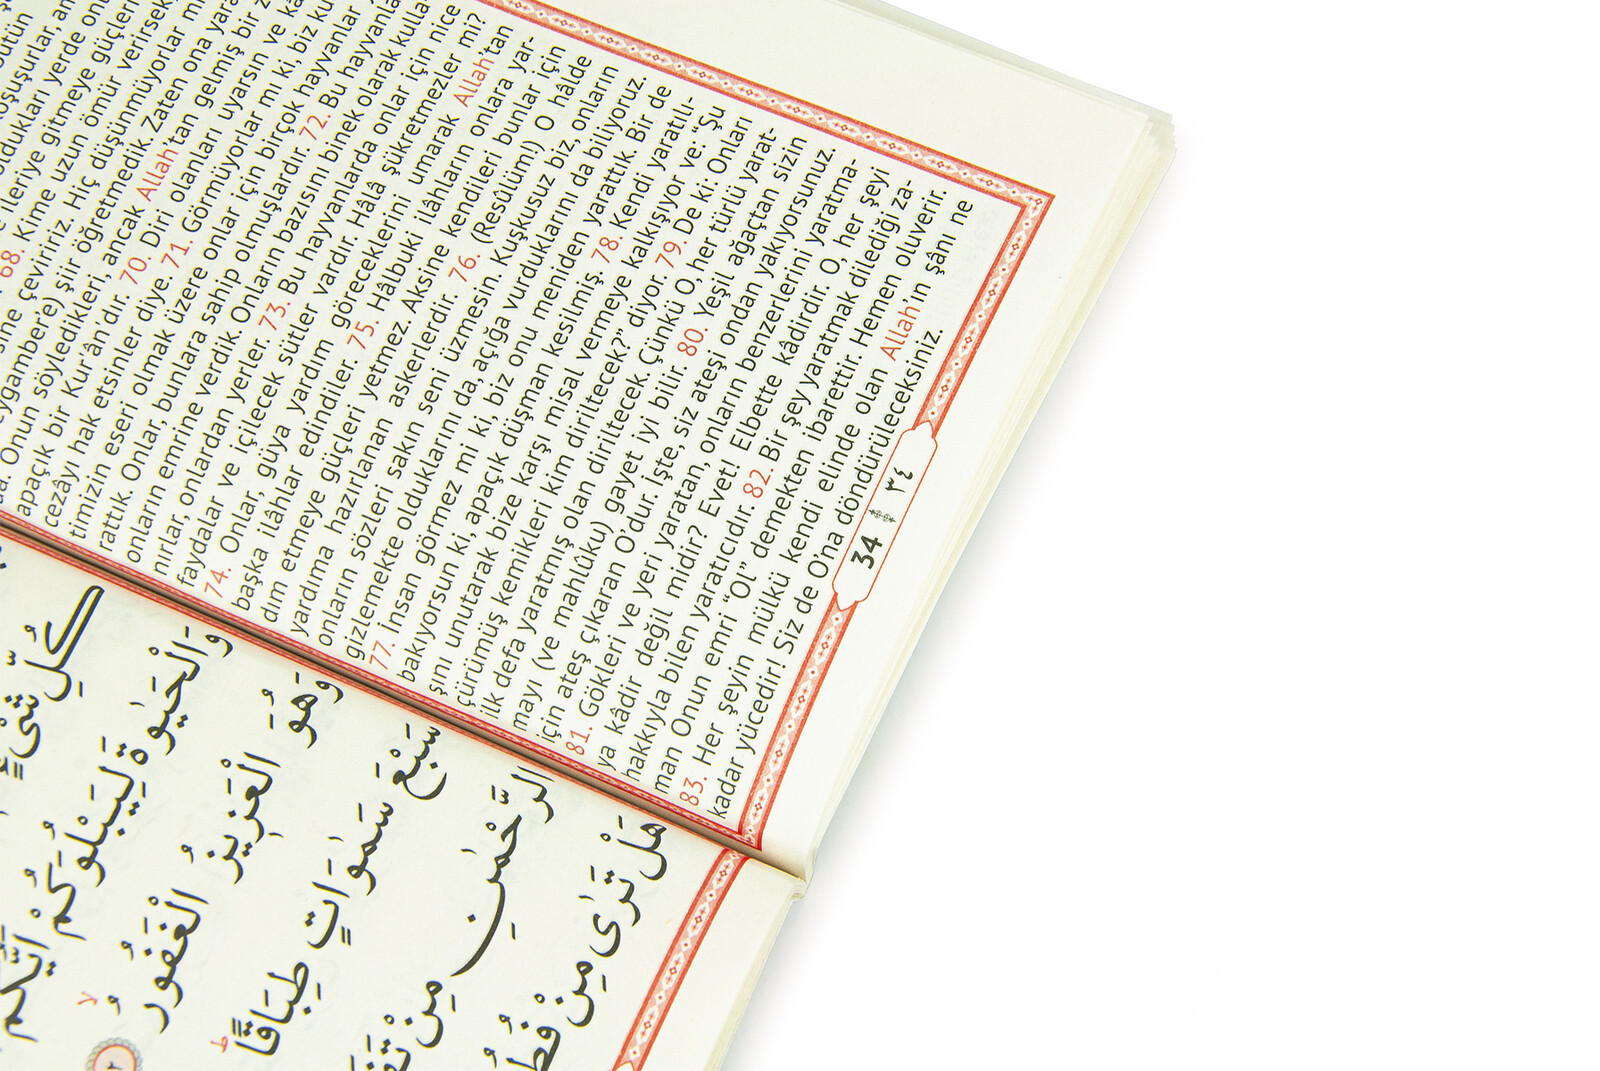 68. Kime uzun ömür verirsek,
sine çeviririz. Hiç düşünmüyorlar mı
ygambere) şiir öğretmedik. Zaten ona yara
Onun söyledikleri, ancak Allah'tan gelmiş bir z
apaçık bir Kur'ân'dır. 70. Diri olanları uyarsın ve kâ
cezâyı hak etsinler diye. 71. Görmüyorlar mı ki, biz ku
timizin eseri olmak üzere onlar için birçok hayvanlar
rattık. Onlar, bunlara sahip olmuşlardır. 72. Bu hayvanla
onların emrine verdik. Onların bazısını binek olarak kulla-
nırlar, onlardan yerler. 73. Bu hayvanlarda onlar için nice
faydalar ve içilecek sütler vardır. Hâlâ şükretmezler mi?
74. Onlar, güya yardım göreceklerini umarak Allah'tan
başka ilâhlar edindiler. 75. Hâlbuki ilâhların onlara yar-
dım etmeye güçleri yetmez. Aksine kendileri bunlar için
yardıma hazırlanan askerlerdir. 76. (Resûlüm!) O hâlde
onların sözleri sakın seni üzmesin. Kuşkusuz biz, onların
gizlemekte olduklarını da, açığa vurduklarını da biliyoruz.
77. İnsan görmez mi ki, biz onu meniden yarattık. Bir de
bakıyorsun ki, apaçık düşman kesilmiş. 78. Kendi yaratılı-
şını unutarak bize karşı misal vermeye kalkışıyor ve: "Şu
çürümüş kemikleri kim diriltecek?" diyor. 79. De ki: Onları
ilk defa yaratmış olan diriltecek. Çünkü O, her türlü yarat-
mayı (ve mahlûku) gayet iyi bilir. 80. Yeşil ağaçtan sizin
için ateş çıkaran O'dur. İşte, siz ateşi ondan yakıyorsunuz.
81. Gökleri ve yeri yaratan, onların benzerlerini yaratma-
ya kâdir değil midir? Evet! Elbette kâdirdir. O, her şeyi
hakkıyla bilen yaratıcıdır. 82. Bir şey yaratmak dilediği za-
man Onun emri "Ol" demekten ibarettir. Hemen oluverir.
83. Her şeyin mülkü kendi elinde olan Allah'ın şânı ne
kadar yücedir! Siz de O'na döndürüleceksiniz.
34 ٣٤
كُلِّ شَىْءٍ
وَالْحَيٰوةَ لِيَبْلُوَكُمْ اَيُّكُمْ
وَهُوَ الْعَزٖيزُ الْغَفُورُ ۙ ٢
سَبْعَ سَمٰوَاتٍ طِبَاقًا ط
الرَّحْمٰنِ مِنْ
هَلْ تَرٰى مِنْ